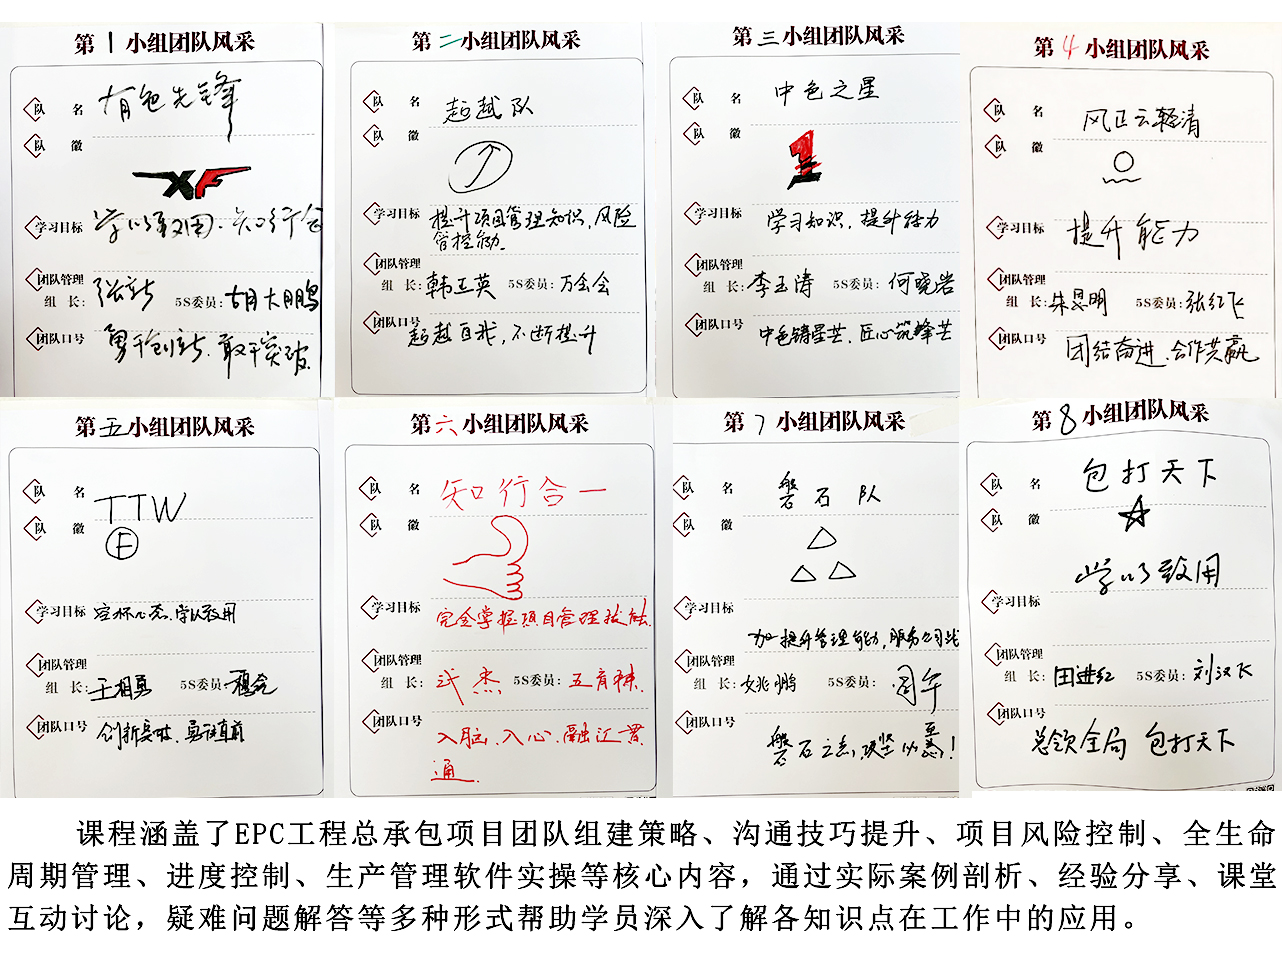 第1小组团队风采
队 名 有色先锋
队 徽
XF
学习目标 学以致用、知行合
团队管理
组 长: 张新 5S委员: 胡大鹏
团队口号 勇于创新、敢于突破
第二小组团队风采
队 名 超越队
队 徽
学习目标 提升项目管理知识,风险
管控能力.
团队管理
组 长: 韩正英 5S委员: 万会会
团队口号 超越自我,不断提升
第三小组团队风采
队 名 中色之星
队 徽
1
学习目标 学习知识,提升能力
团队管理
组 长: 李玉涛 5S委员: 何晓岩
团队口号 中色铸星芒,匠心筑峰芒
第4小组团队风采
队 名 风正云轻清
队 徽
学习目标 提升能力
团队管理
组 长: 朱昆明 5S委员: 张红飞
团队口号 团结奋进、合作共赢
第五小组团队风采
队 名 TTW
队 徽
E
学习目标 空杯心态、学以致用
团队管理
组 长: 王相勇 5S委员:
团队口号 创新突破、勇往直前
第六小组团队风采
队 名 知行合一
队 徽
学习目标 完全掌握项目管理技能.
团队管理
组 长: 武杰 5S委员: 王育棟.
团队口号 入脑、入心、融汇贯
通.
第7小组团队风采
队 名 磐石队
队 徽
学习目标
加提升管理能力,服务公司战
团队管理
组 长: 姚鹏 5S委员: 周午
团队口号
磐石之志,攻坚以恒!
第8小组团队风采
队 名 包打天下
队 徽
学以致用
学习目标
团队管理
组 长: 田进红 5S委员: 刘汉飞
团队口号
总领全局 包打天下
课程涵盖了EPC工程总承包项目团队组建策略、沟通技巧提升、项目风险控制、全生命
周期管理、进度控制、生产管理软件实操等核心内容，通过实际案例剖析、经验分享、课堂
互动讨论，疑难问题解答等多种形式帮助学员深入了解各知识点在工作中的应用。